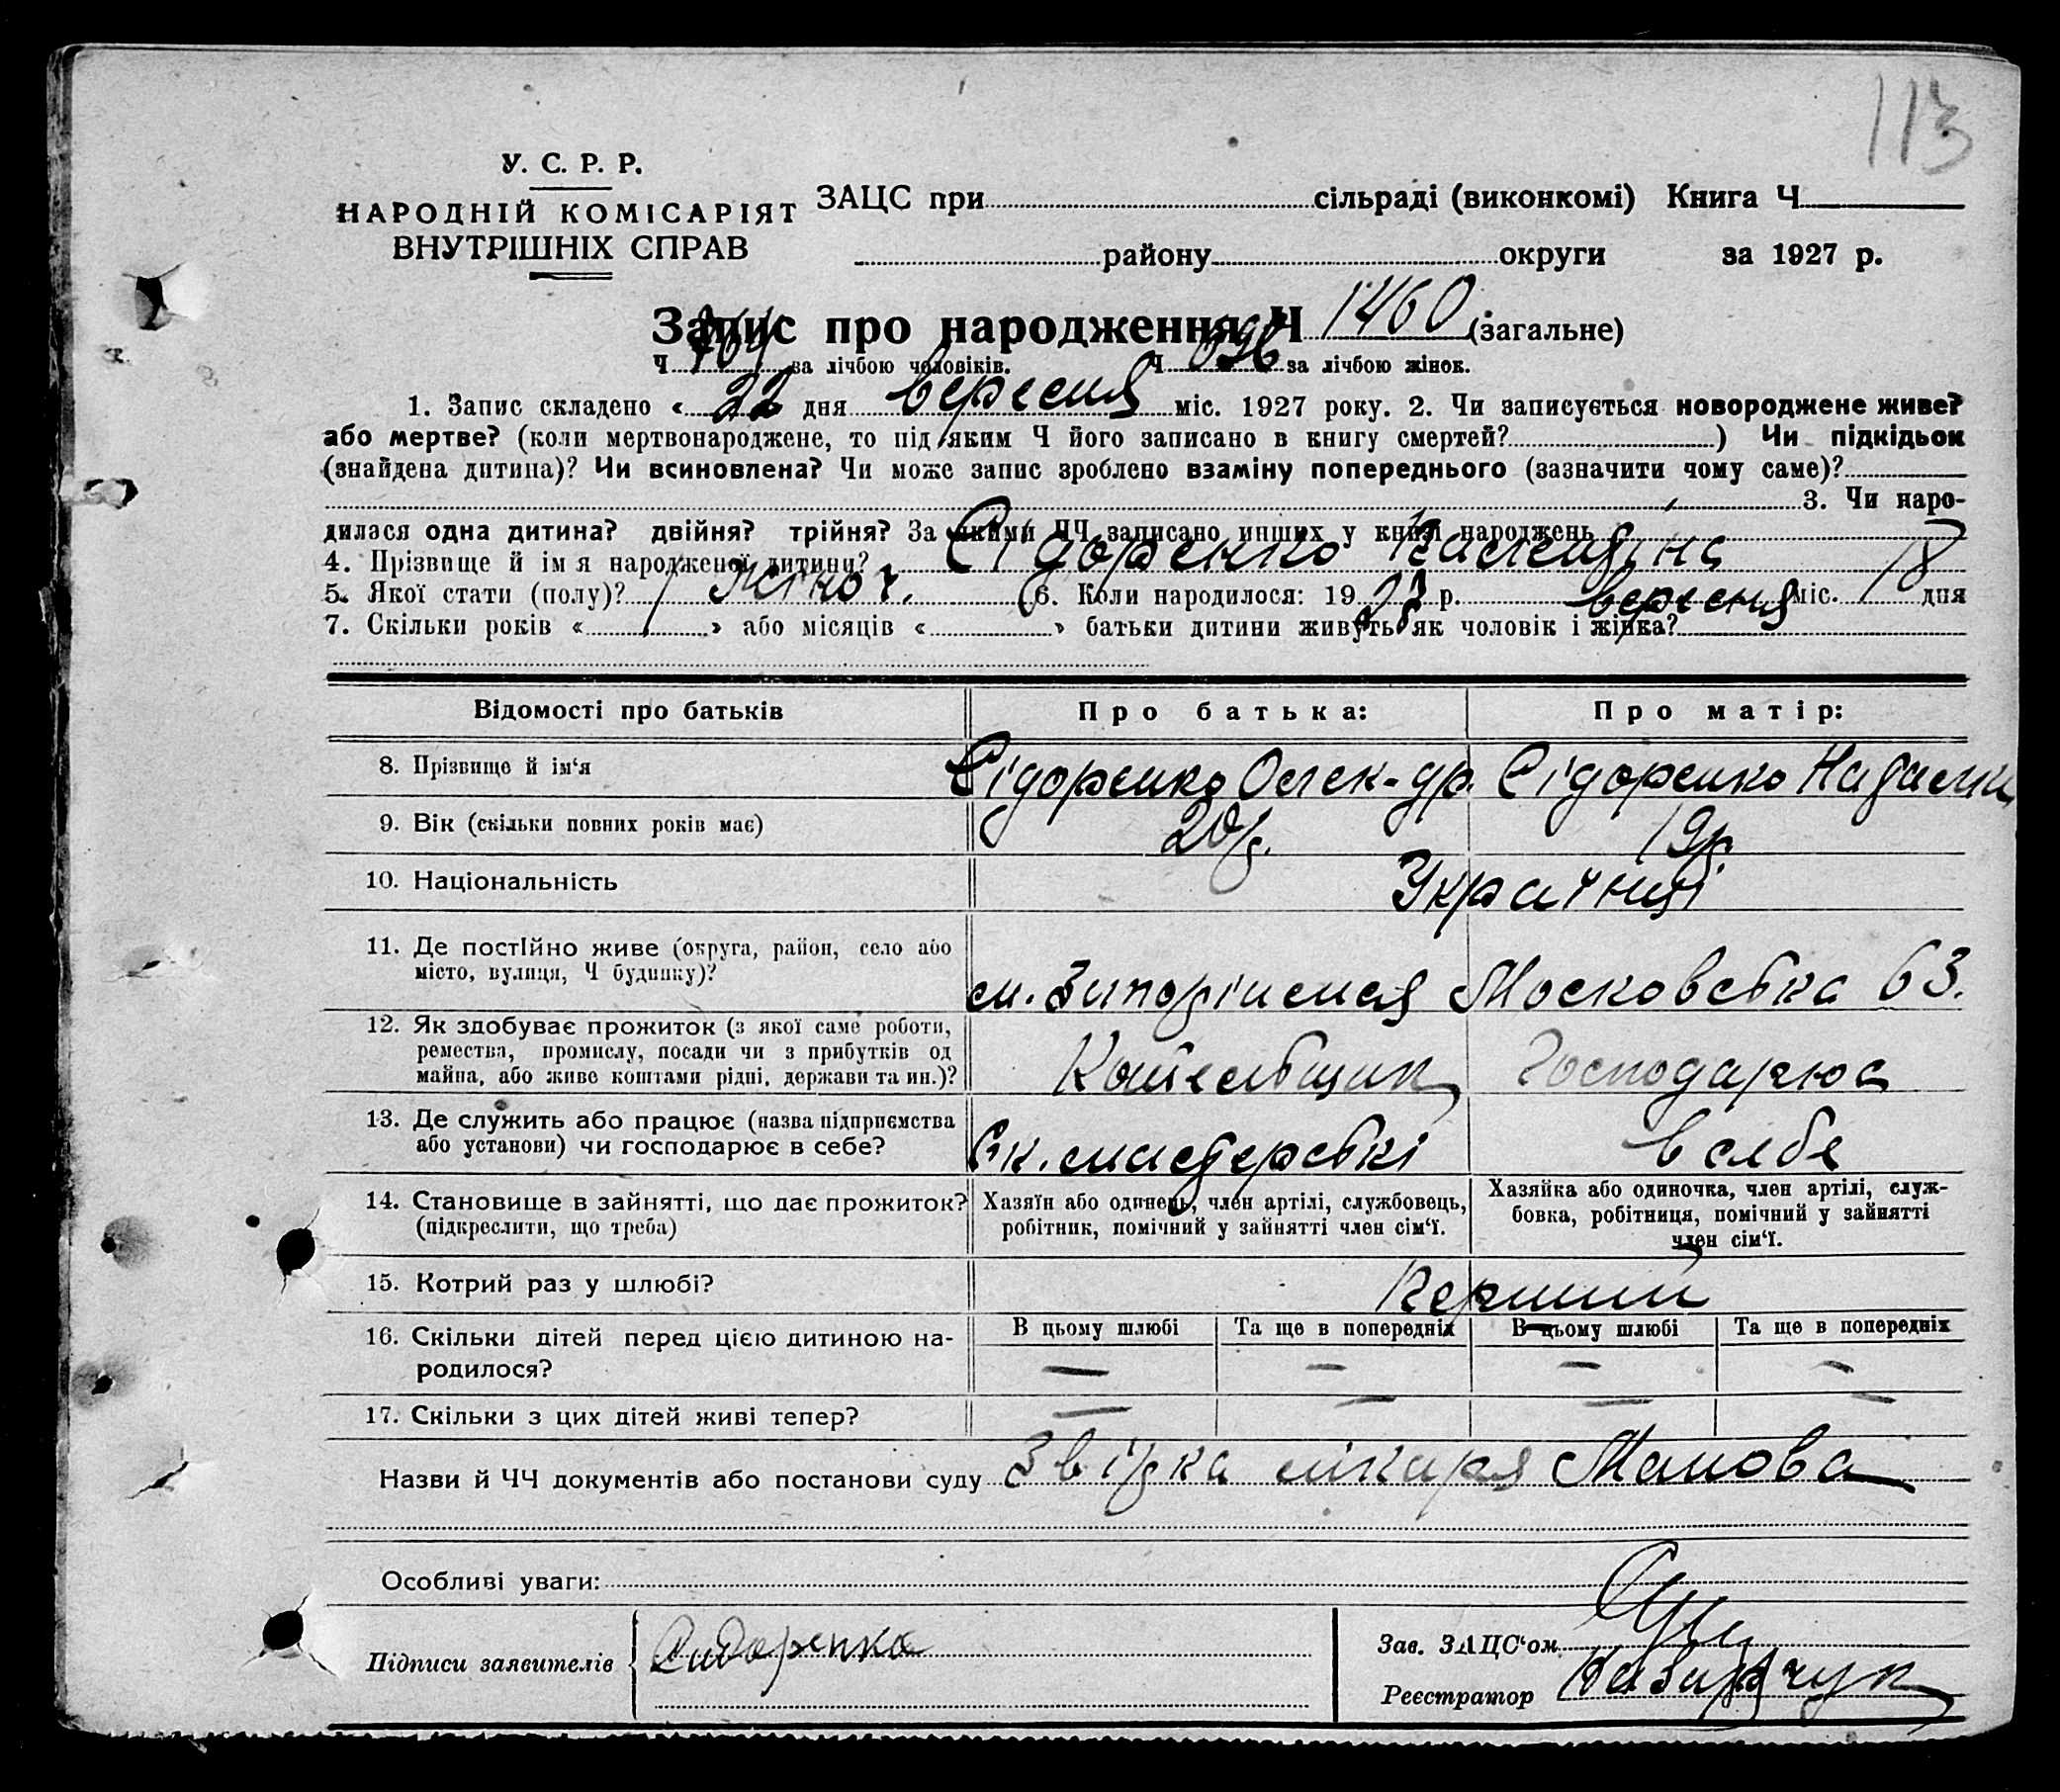 113
У. С. Р. Р.
НАРОДНІЙ КОМІСАРІЯТ
ВНУТРІШНІХ СПРАВ
ЗАЦС при сільраді (виконкомі) Книга Ч
району округи за 1927 р.
Запис про народження Ч 1460 (загальне)
Ч 764 за лічбою чоловіків. Ч 696 за лічбою жінок.
1. Запис складено « 22 дня вересня міс. 1927 року. 2. Чи записується новороджене живе?
або мертве? (коли мертвонароджене, то під яким Ч його записано в книгу смертей? ) Чи підкідьок
(знайдена дитина)? Чи всиновлена? Чи може запис зроблено взаміну попереднього (зазначити чому саме)?
3. Чи наро-
дилася одна дитина? двійня? трійня? За якими ЧЧ записано инших у книзі народжень
4. Прізвище й ім я народженої дитини? Сідоренко Валентіна
5. Якої стати (полу)? Жіноч. 6. Коли народилося: 1927 р. вересня міс. 18 дня
7. Скільки років « » або місяців « » батьки дитини живуть як чоловік і жінка?
Відомості про батьків Про батька: Про матір:
8. Прізвище й ім‘я Сідоренко Олек-др. Сідоренко Надежи
9. Вік (скільки повних років має) 20 р. 19 р.
10. Національність Українці
11. Де постійно живе (округа, район, село або
місто, вулиця, Ч будинку)? м. Запоріжжя Московська 63.
12. Як здобуває прожиток (з якої саме роботи,
ремества, промислу, посади чи з прибутків од
майна, або живе коштами рідні, держави та ин.)? Котельщик Господарює
13. Де служить або працює (назва підприємства
або установи) чи господарює в себе? Єк. мастерські в себе
14. Становище в зайнятті, що дає прожиток?
(підкреслити, що треба)
Хазяїн або одинець, член артілі, службовець,
робітник, помічний у зайнятті член сім‘ї.
Хазяйка або одиночка, член артілі, служ-
бовка, робітниця, помічний у зайнятті
член сім‘ї.
15. Котрий раз у шлюбі? Перший
16. Скільки дітей перед цією дитиною на-
родилося?
В цьому шлюбі Та ще в попередніх В цьому шлюбі Та ще в попередніх
— — — —
17. Скільки з цих дітей живі тепер? — — — —
Назви й ЧЧ документів або постанови суду Звідка лікаря Манова
Особливі уваги:
Підписи заявителів Сидоренко
Зав. ЗАЦС‘ом
Реєстратор